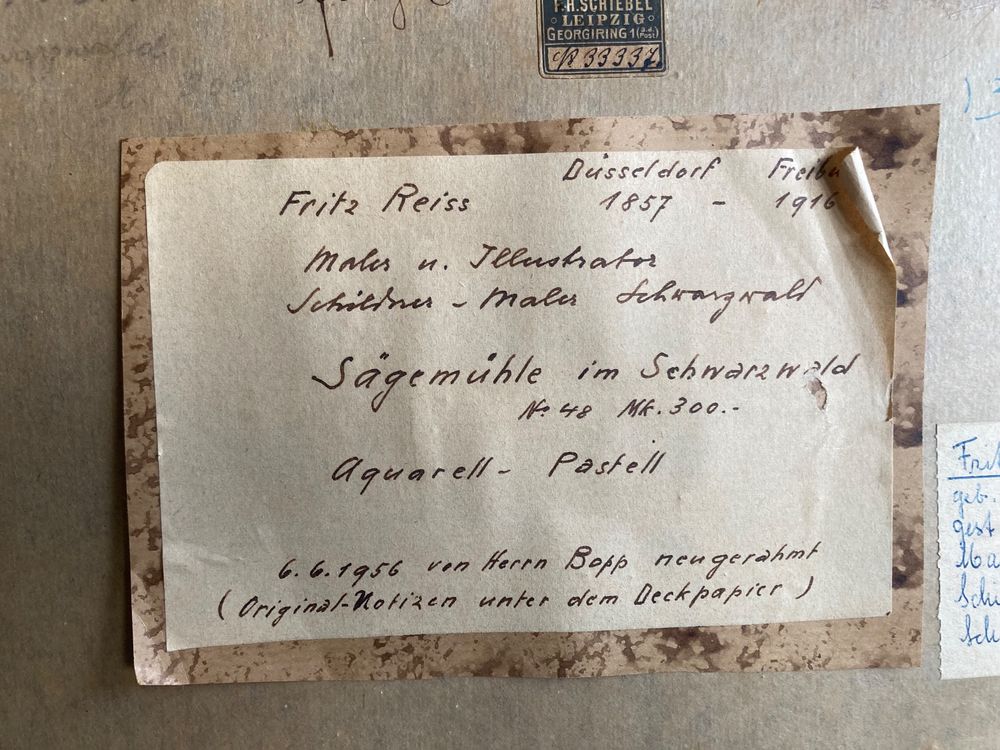 F.H. SCHIEBEL
LEIPZIG
GEORGIRING 1
33337
Düsseldorf Freibu
Fritz Reiss 1857 - 1916
Maler u. Illustrator
Schildrer - Maler Schwarzwald
Sägemühle im Schwarzwald
No 48 Mk. 300.-
Aquarell - Pastell
6.6.1956 von Herrn Bopp neugerahmt
(Original-Notizen unter dem Deckpapier)
geb.
gest